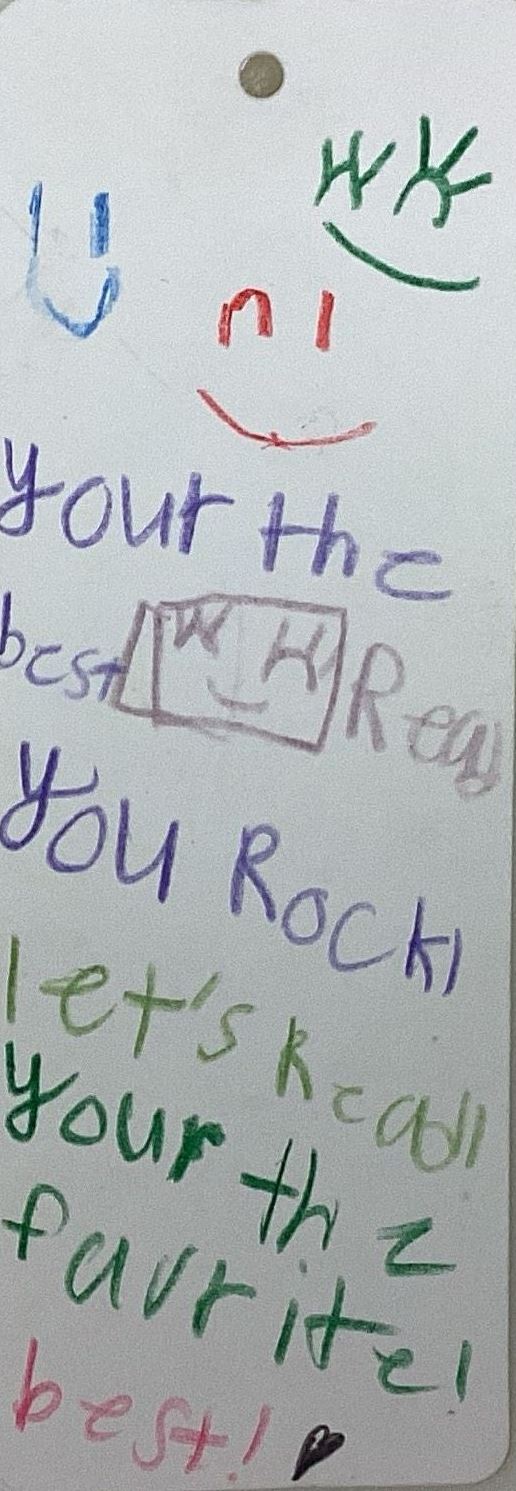 your the
best Read
you Rock!
let's Read!!
your the
favrite!
best!